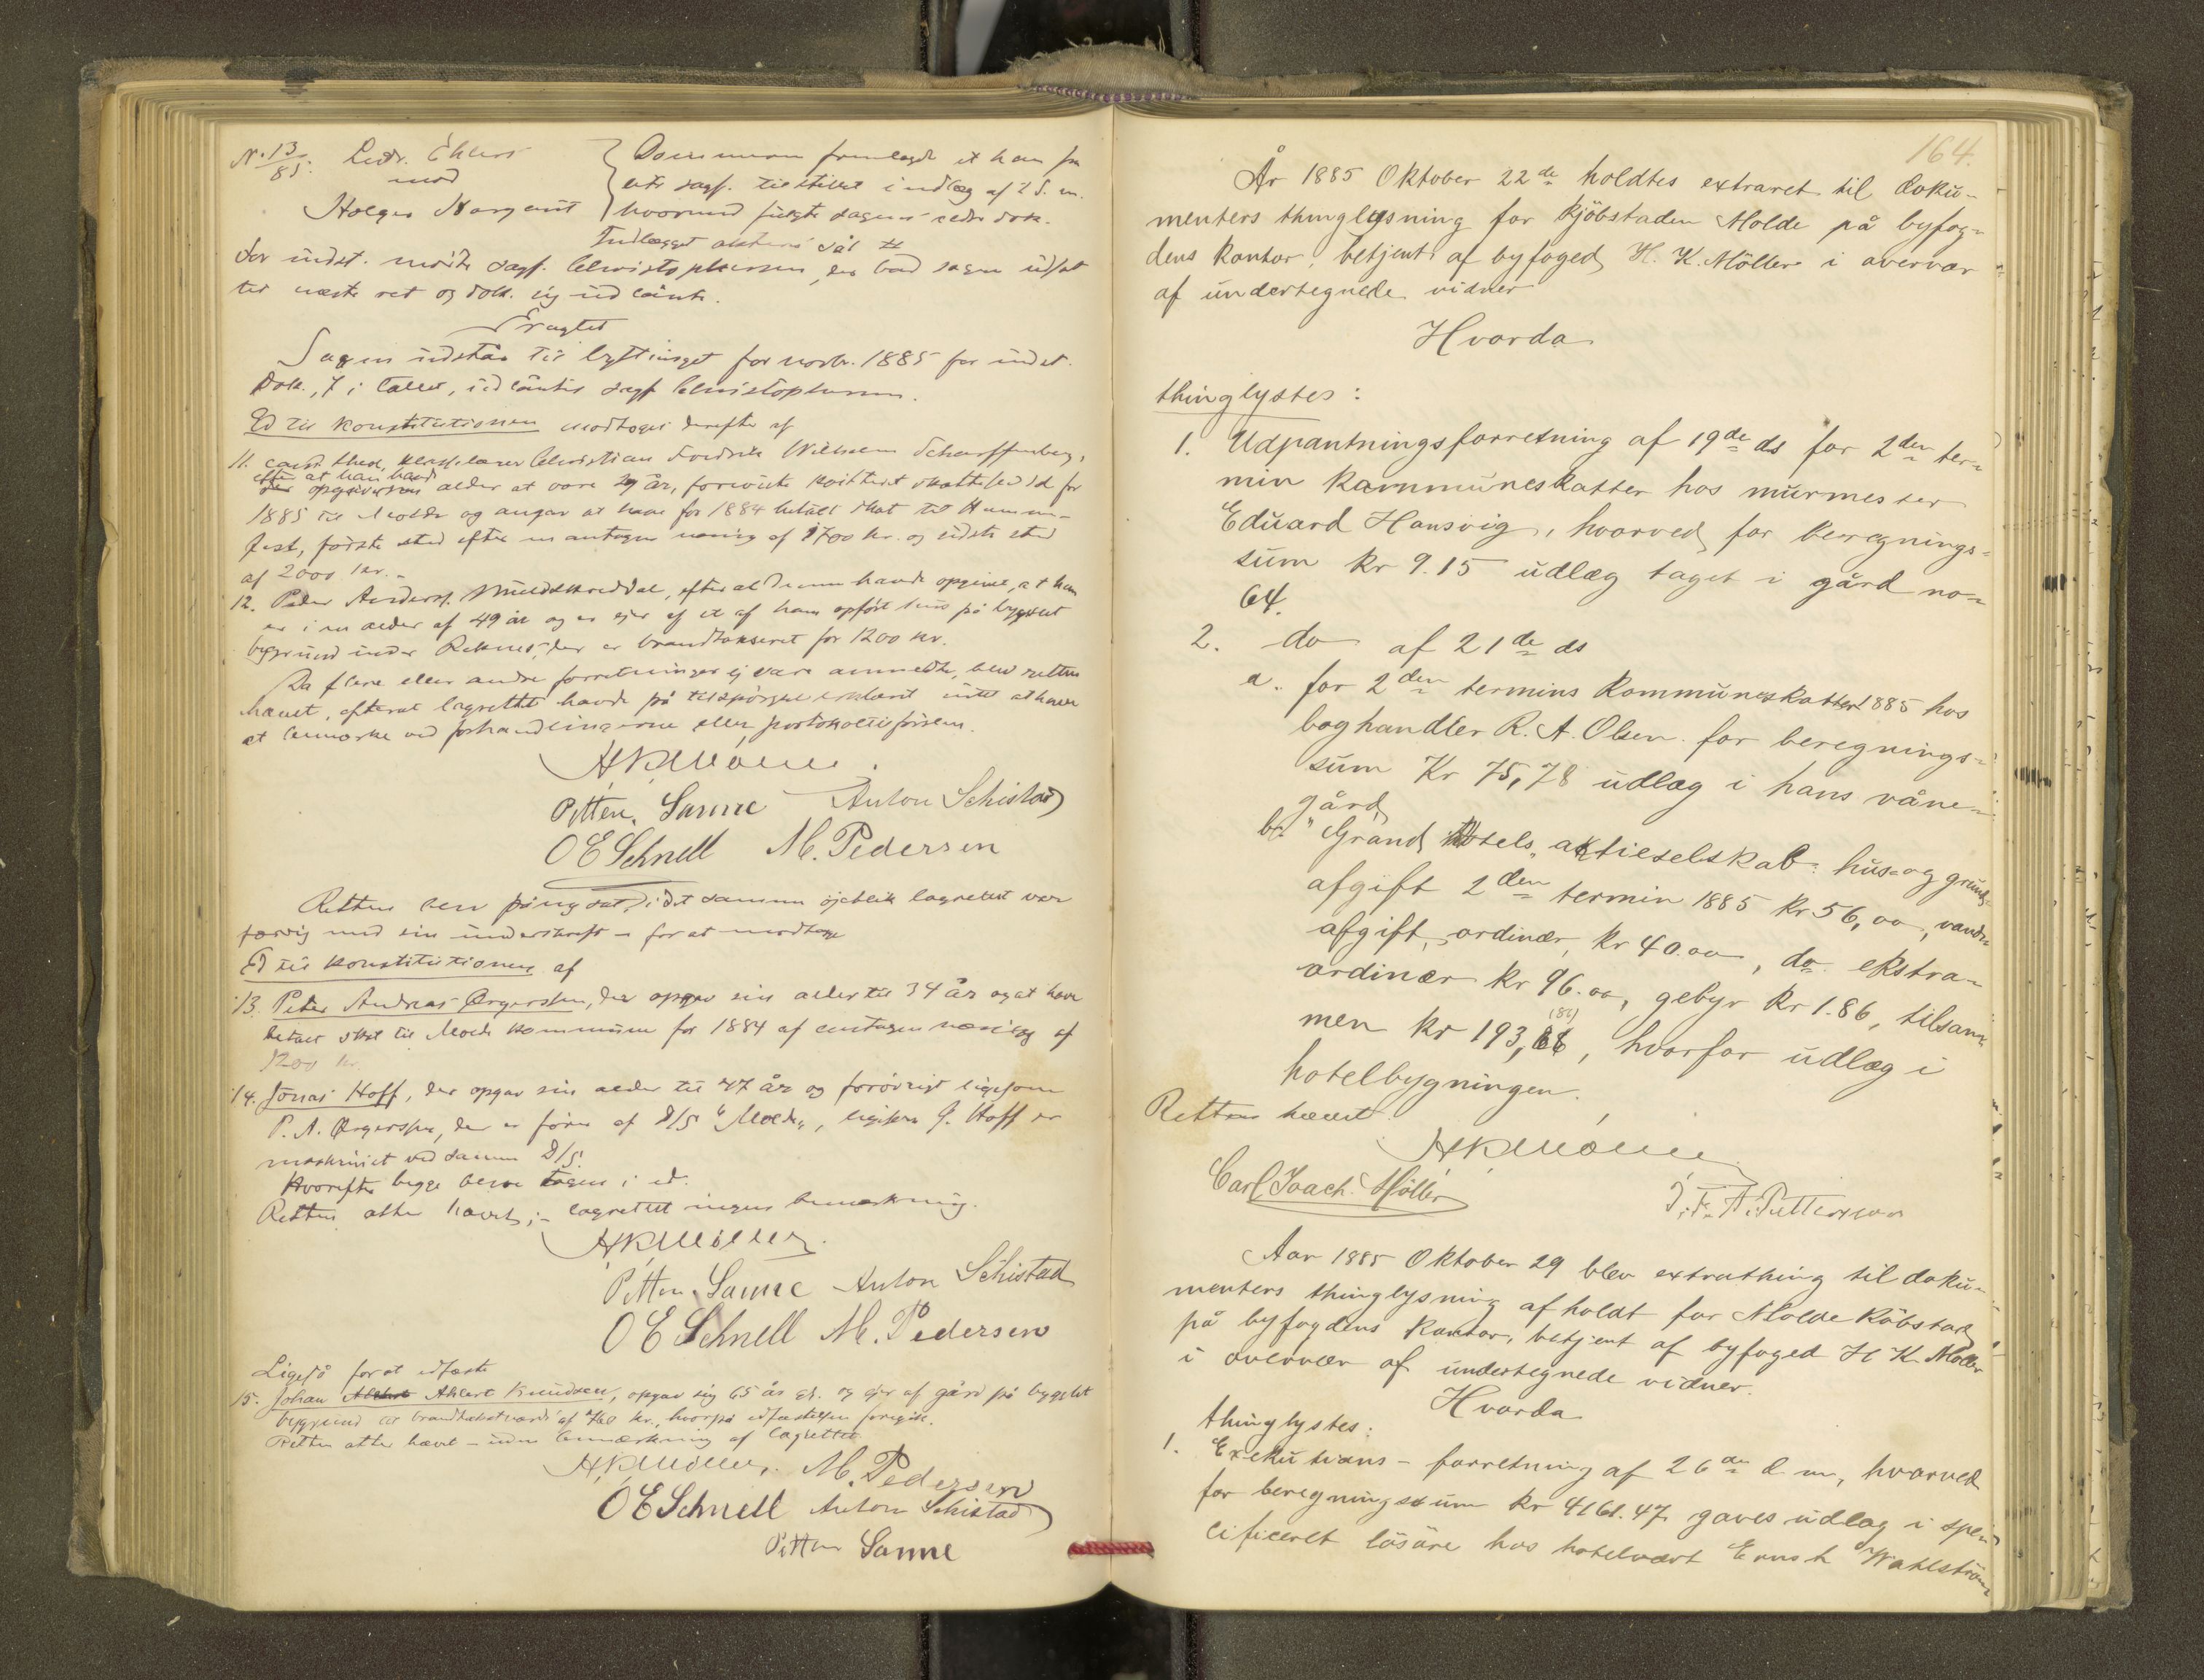 N. 13/85. Ludv. Ehlers
mod
Holger Margaut
Dommeren fremlagde et ham fra
sagf. tilstillet indlæg af 2 d. m.
hvormed fulgte sagens dok.
Indlægget akteres sål. #
For indst. mødte sagf. Christophersen, der bad sagen udsat
til næste ret og dok. sig udlånt.
Eragtet
Sagen udstår til bythinget for novbr. 1885 for indst.
Dok., 7 i tallet, udlåntes sagf. Christophersen.
Ed til konstitutionen modtoges derefter af
11. cand. theol., klasselærer Christian Fredrik Wilhelm Scharffenberg,
efter at han havde
opgivet sin alder at være 29 år, foreviste kvitteret skatteseddel for
1885 til Molde og angav at have for 1884 betalt skat til Hammer-
fest, første sted efter en antagen næring af 1700 kr. og sidste sted
af 2000 kr. -
12. Peder Anders. Muldskreddal, efterat denne havde opgivet, at han
er i en alder af 49 år og er ejer af et af ham opført hus på bygslet
bygrund under Reknes, der er brandtakseret for 1200 kr.
Da flere eller andre forretninger ej vare anmeldte, blev retten
hævet, efterat lagrettet havde på tilspørgsel erklæret intet at have
at bemærke ved forhandlingerne eller protokollførslen.
HKMöller.
Petter Sanne Anton Schistad
O E Schnell M. Pedersen
Retten blev påny sat, i det samme øjeblik lagrettet var
færdig med sin underskrift - for at modtage
Ed til konstitutionen af
13. Peter Andreas Ørgersen, der opgav sin alder til 34 år og at have
betalt skat til Molde kommune for 1884 af antagen næring af
1200 kr.
14. Jonas Hoff, der opgav sin alder til 47 år og forøvrigt ligesom
P. A. Ørgersen, der er fører af D/S "Molde", ligesom J. Hoff er
maskinist ved samme D/S.
Hvorefter begge bleve tagen i ed.
Retten atter hævet; - lagrettet ingen bemærkning.
HKMöller.
Petter Sanne Anton Schistad
O E Schnell M. Pedersen
Ligeså for at edfæste
15. Johan Ahlert Knudsen, opgav sig 65 år gl. og ejer af gård på bygslet
bygrund til brandtakstværdi af 760 kr., hvorpå edfæstelsen foregik.
Retten atter hævet - uden bemærkning af lagrettet.
HKMöller. M. Pedersen
O E Schnell Anton Schistad
Petter Sanne
164.
År 1885 Oktober 22de holdtes extraret til doku-
menters thinglysning for kjöbstaden Molde på byfog-
dens kontor, betjent af byfoged H. K. Möller i overvær
af undertegnede vidner
Hvorda
thinglystes:
1. Udpantningsforretning af 19de ds for 2den ter-
min kommuneskatter hos murmester
Eduard Hansvig, hvorved for beregnings-
sum kr 9.15 udlæg taget i gård no-
64.
2. do af 21de ds
a. for 2den termins kommuneskatter 1885 hos
boghandler R. A. Olsen for beregnings-
sum Kr 75,78 udlæg i hans våne-
gård
b. "Grand Hotels" aktieselskab: hus- og grund-
afgift 2den termin 1885 kr 56,00, vand-
afgift, ordinær, kr 40.00, do ekstra-
ordinær kr 96.00, gebyr kr 1.86, tilsam-
men kr 193,86 (86), hvorfor udlæg i
hotelbygningen.
Retten hævet.
HKMöller
Carl Joach. Möller J. F. A. Petterson
Aar 1885 Oktober 29 blev extrathing til doku-
menters thinglysning afholdt for Molde Köbstad
på byfogdens kontor, betjent af byfoged H K Möller
i overvær af undertegnede vidner.
Hvorda
thinglystes:
1. Exekutions - forretning af 26de d m, hvorved
for beregningssum kr 4161.47 gaves udlæg i spe-
cificeret lösöre hos hotelvært Ernst Wahlström